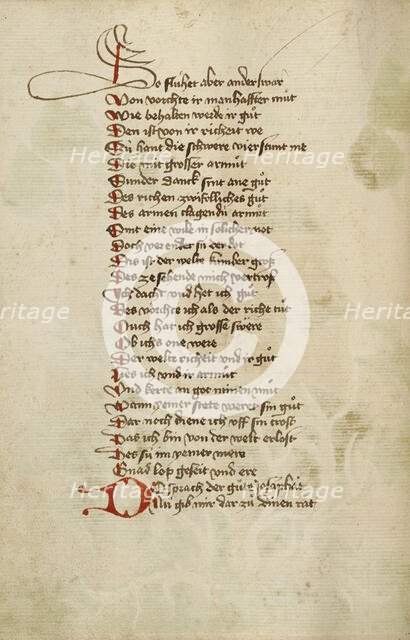 So fluhet aber anderswar
Von vorchte ir manhaffter mut
Wie behalten werde ir gut
Den ist von ir richeit we
Zu hant die schwere vierstunt me
Die mit grosser armut
Sunder danck sint ane gut
Des richen zwifflliches gut
Des armen clagendu armut
Smt eine wile in solicher not
Doch verendet su der dot
Dis ist der welte kumber groß
Des zesehende mich vertroß
Ich dacht und het ich gut
Des vorchte ich als der riche tut
Ouch hat ich grosse swere
Ob ichs one were
Der welte richeit und ir gut
Lies ich und ir armut
Und kerte an got minen mut
Wann yemer stete weret sin gut
Dar noch diene ich uff sin trost
Das ich bin von der welt erlost
Des su im yemer mere
Gnad lop geseit und ere
Do sprach der gute Josaphat
Nu gib mir dar zu dinen rat
Heritage
Heritage
Heritage
Heritage
Heritage
Heritage
Heritage
Heritage